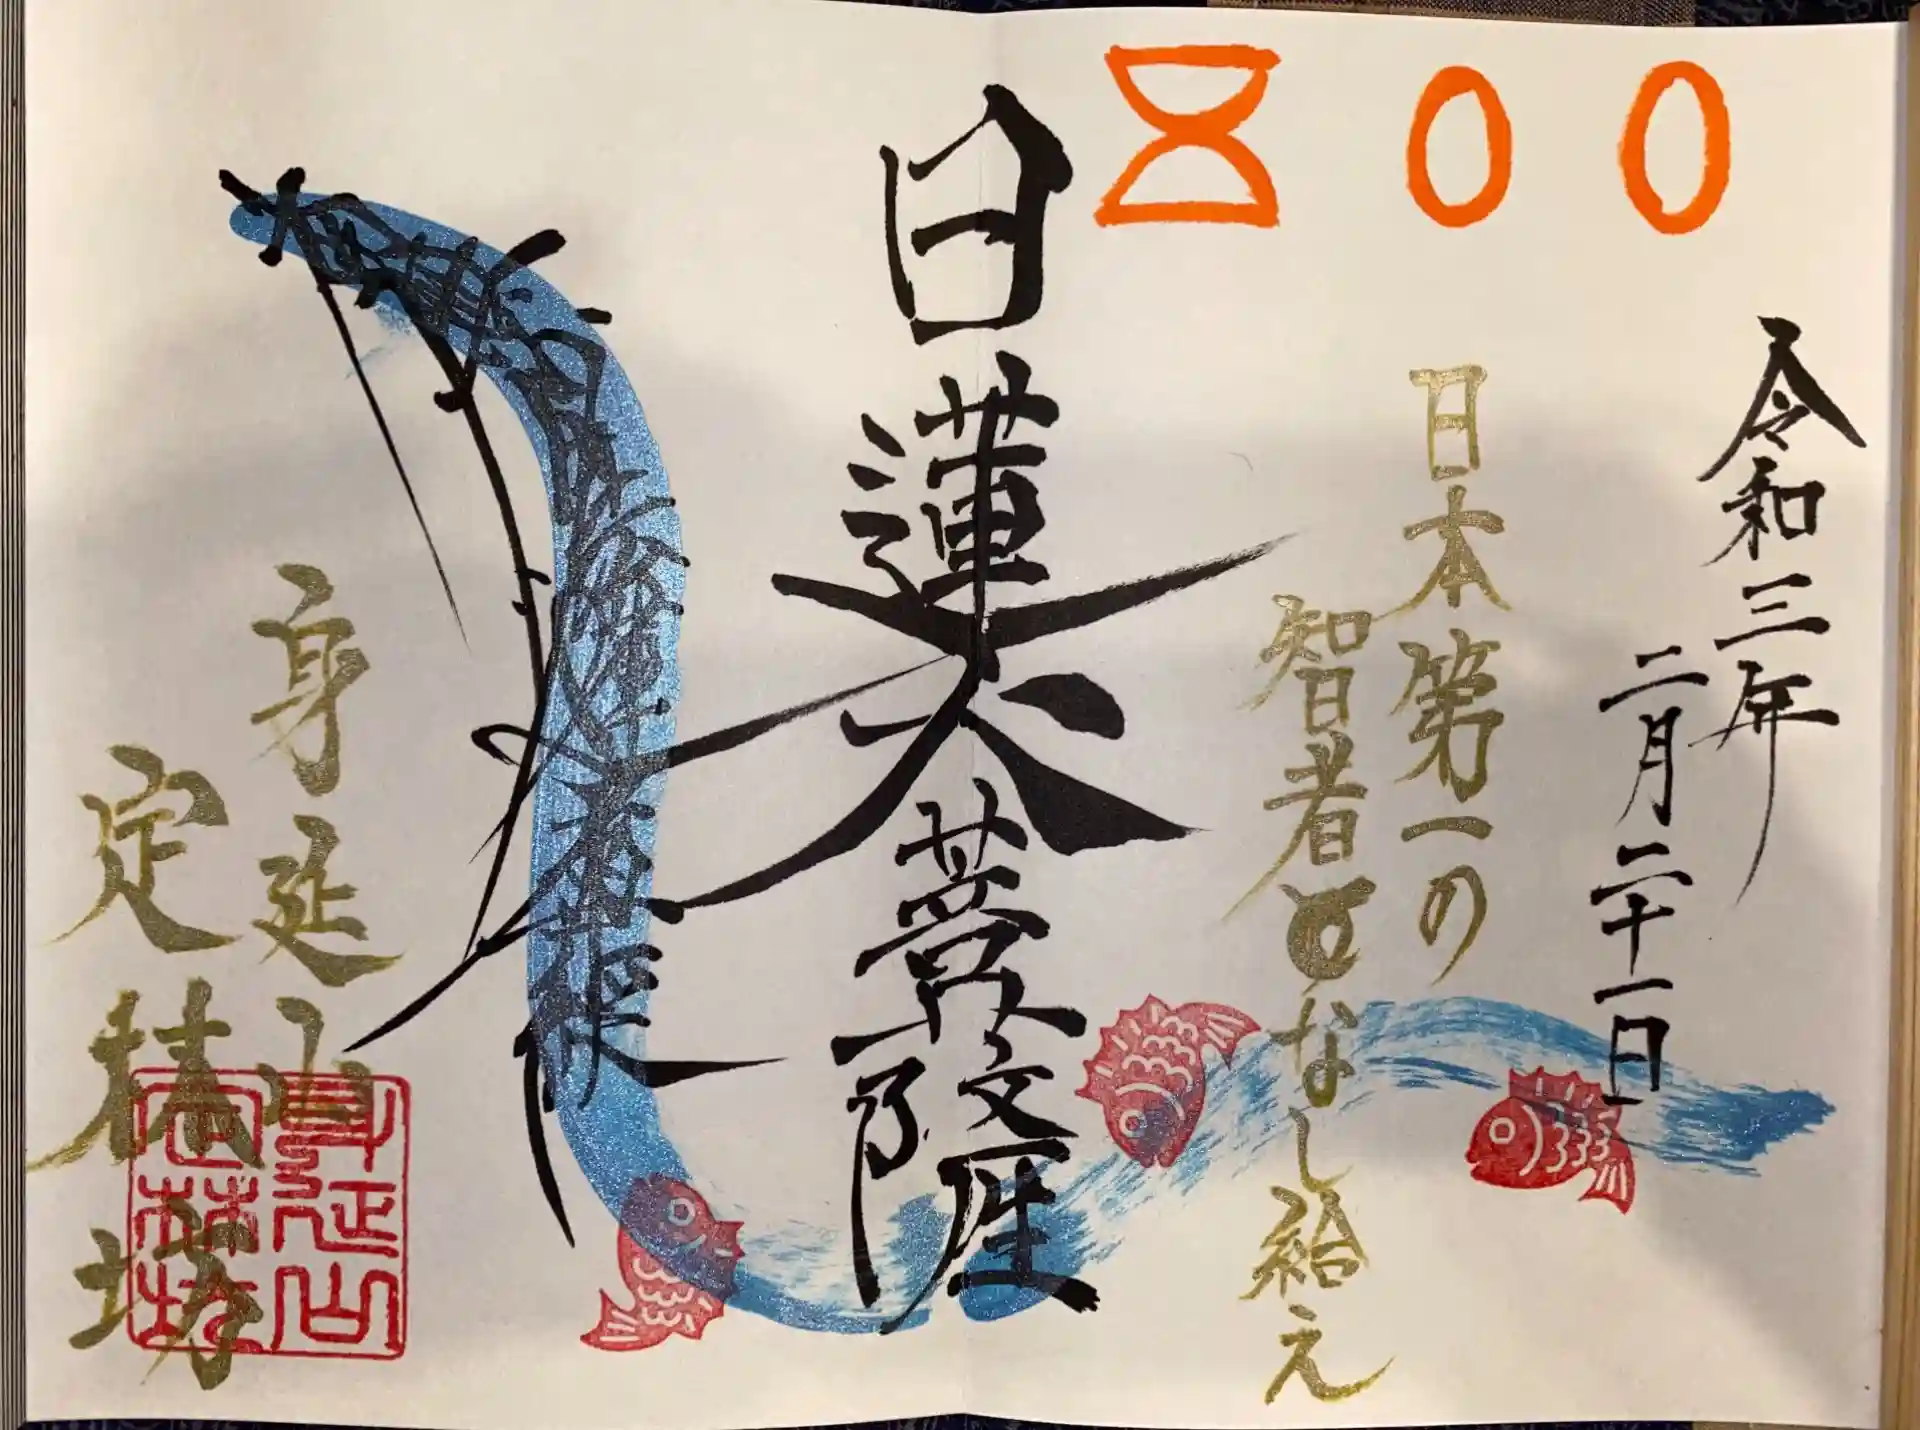 令和三年
二月二十一日
日本第一の
智者となし給え
日蓮大菩薩
身延山
定林坊
身延山
定林坊